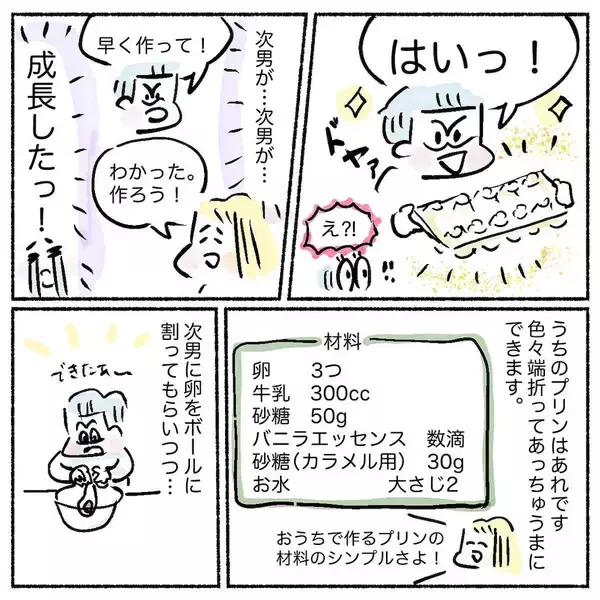 はいっ！
ドヤァ
え?!
次男が…次男が…
早く作って！
わかった。
作ろう！
成長したっ！
うちのプリンはあれです
色々端折ってあっちゅうまに
できます。
材料
卵 3つ
牛乳 300cc
砂糖 50g
バニラエッセンス 数滴
砂糖(カラメル用) 30g
お水 大さじ2
おうちで作るプリンの
材料のシンプルさよ！
次男に卵をボールに
割ってもらいつつ…
できたあー